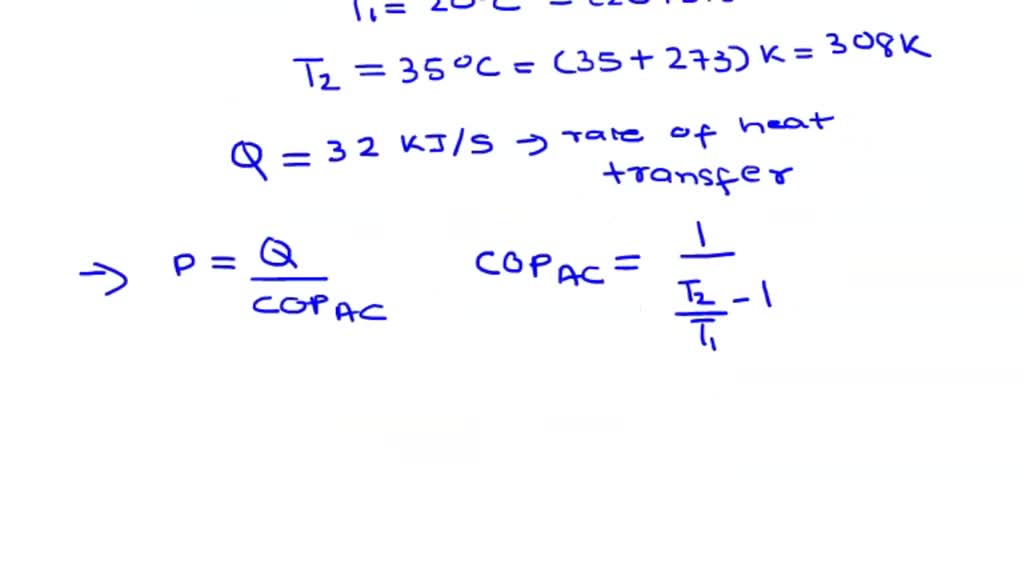 T₁ = 20°C =
T₂ = 35°C = (35 + 273) K = 308K
Q = 32 KJ/S → rate of heat
transfer
→ P = Q / COP_AC COP_AC = 1 / (T₂/T₁ - 1)